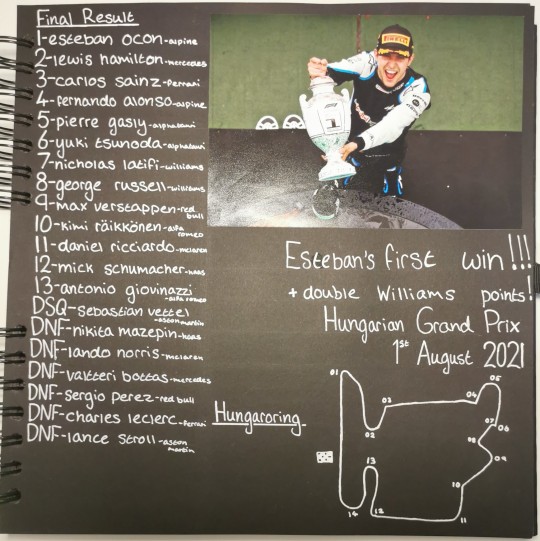 Final Result
1-esteban ocon-alpine
2-lewis hamilton-mercedes
3-carlos sainz-Ferrari
4-fernando alonso-alpine
5-pierre gasly-alphatauri
6-yuki tsunoda-alphatauri
7-nicholas latifi-williams
8-george russell-williams
9-max verstappen-red
bull
10-kimi räikkönen-alfa
romeo
11-daniel ricciardo-mclaren
12-mick schumacher-haas
13-antonio giovinazzi
-alfa romeo
DSQ-sebastian vettel
-aston martin
DNF-nikita mazepin-haas
DNF-lando norris-mclaren
DNF-valtteri bottas-mercedes
DNF-sergio perez-red bull
DNF-charles leclerc-Ferrari
DNF-lance stroll-aston
martin
1
Esteban's first win!!!
+ double Williams points!
Hungarian Grand Prix
1st August 2021
Hungaroring
01
02
03
04
05
06
07
08
09
10
11
12
13
14